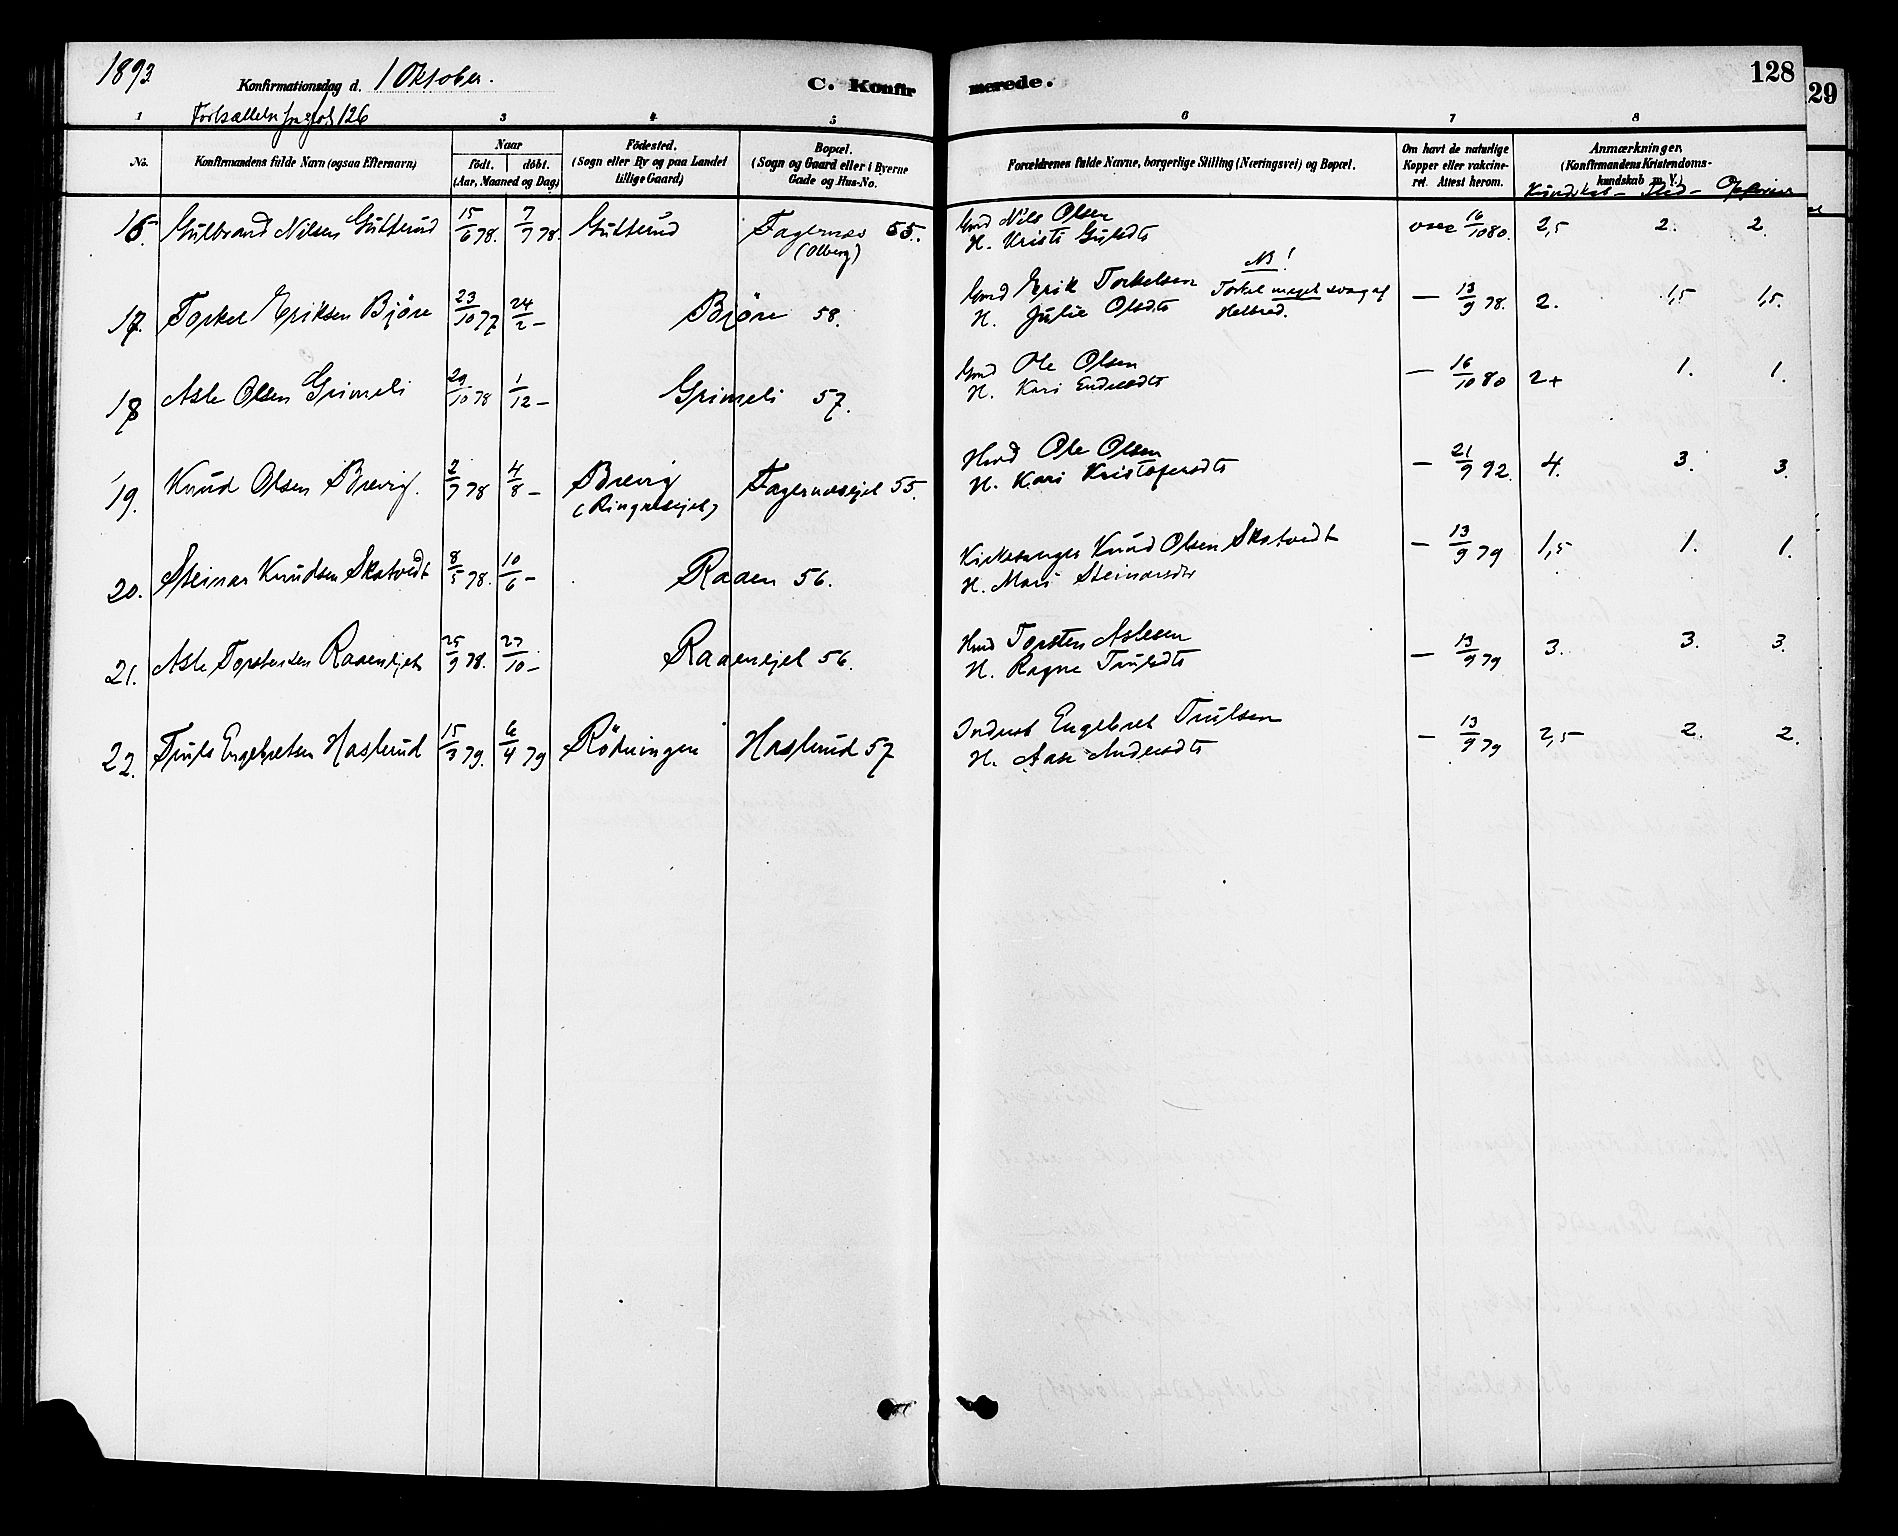 1893
Konfirmationsdag d. 1 Oktober.
C. Konfirmerede.
128
29
Fortsættelse fra fol 126
1 3 4 5 6 7 8
No.
Konfirmandens fulde Navn (ogsaa Efternavn)
Naar
födt. döbt.
(Aar, Maaned og Dag)
Födested.
(Sogn eller By og paa Landet
tillige Gaard)
Bopæl.
(Sogn og Gaard eller i Byerne
Gade og Hus-No.
Forældrenes fulde Navne, borgerlige Stilling (Næringsvei) og Bopæl.
Om havt de naturlige
Kopper eller vakcine-
ret. Attest herom.
Anmærkninger.
(Konfirmandens Kristendoms-
kundskab m. V.)
Kundskab – Flid –
16. Gulbrand Nilsen Gulterud 15/6 78. 7/7 78. Gulterud Fagernæs 55. Gmd Nils Olsen vacc 16/10 80. 2,5 2. 2.
(Olberg) H. Kristi Gulsdt
NB!
17. Torkel Eriksen Björe 23/10 77 24/2 – Björe 58. Gmd Erik Torkelsen Torkel meget svag af – 13/9 78. 2. 1,5 1,5.
H. Julie Olsdt Helbred.
18 Asle Olsen Grimeli 29/10 78 1/12 – Grimeli 57. Gmd Ole Olsen – 16/10 80 2+ 1. 1.
H. Kari Endresdt
19. Knud Olsen Brevig. 2/7 78 4/8 – Brevig Fagernæsejet 55. Hmd Ole Olsen – 21/9 92. 4. 3. 3.
(Ringnesejet) H. Kari Kristofersdt
20. Steinar Knudsen Skatvedt 8/5 78. 10/6 – Raaen 56. Kirkesanger Knud Olsen Skatvedt – 13/9 79 1,5 1. 1.
H. Mari Steinarsdt
21. Asle Torstensen Raaenejet 25/9 78. 27/10 – Raaenejet 56. Hmd Torsten Aslesen – 13/9 79 3. 3. 3.
H. Ragne Trulsdt
22. Truls Engebretsen Haslerud 15/3 79. 6/4 79 Rödningen Haslerud 57 Inderst Engebret Trulsen – 13/9 79 2,5 2. 2.
H. Aase Andersdt